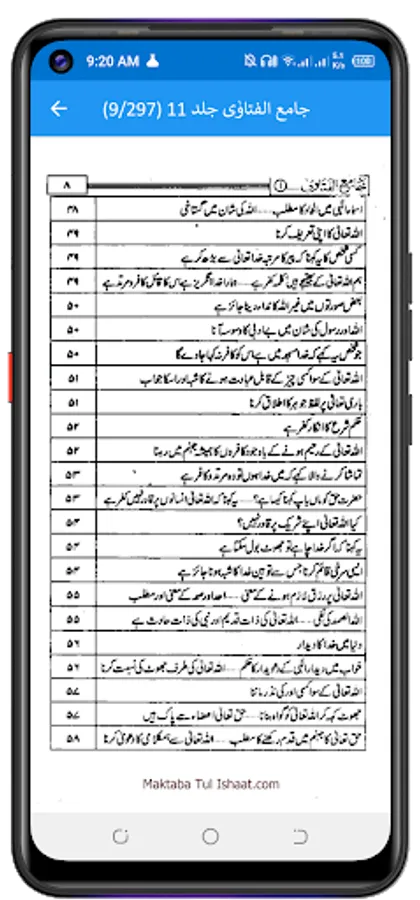 9:20 AM
5.1 K/s 100
جامع الفتاوٰی جلد 11 (9/297)
جامع الفتاویٰ ... ① ۸
اسماء الٰہی میں الحاد کا مطلب ... اللہ کی شان میں گستاخی ۴۸
اللہ تعالیٰ کا اپنی تعریف کرنا ۴۹
کسی شخص کا یہ کہنا کہ پیر کا مرتبہ خدا تعالیٰ سے بڑھ کر ہے ۴۹
ہم اللہ تعالیٰ کے بھتیجے ہیں کلمہ کفر ہے ... ہمارا خدا انگریز ہے اس کا قائل کافر و مرتد ہے ۴۹
بعض صورتوں میں غیر اللہ کا نداء دینا جائز ہے ۵۰
اللہ اور رسول کی شان میں بے ادبی کا وسوسہ آنا ۵۰
جو شخص یہ کہے کہ خدا مسجد میں ہے اس کو کافر نہ کہا جاوے گا ۵۰
اللہ تعالیٰ کے سوا کسی چیز کے قابل عبادت ہونے کا شبہ اور اس کا جواب ۵۱
باری تعالیٰ پر لفظ جوہر کا اطلاق کرنا ۵۱
حکم شرع کا انکار کفر ہے ۵۲
اللہ تعالیٰ کے رحیم ہونے کے باوجود کافروں کا ہمیشہ جہنم میں رہنا ۵۲
تماشا کرنے والا کہے کہ میں خدا ہوں تو وہ مرتد و کافر ہے ۵۳
حضرت حق کو ماں باپ کہنا کیسا ہے؟ ... یہ کہنا کہ اللہ تعالیٰ انسانوں پر قادر نہیں کفر ہے ۵۳
کیا اللہ تعالیٰ اپنے شریک پر قادر نہیں؟ ۵۴
یہ کہنا کہ اگر خدا چاہے تو جھوٹ بول سکتا ہے ۵۴
ایسی سرخی قائم کرنا جس سے توہین خدا کا شبہ ہو نا جائز ہے ۵۴
اللہ تعالیٰ پر رزق لازم ہونے کے معنی ... احد اور صمد کے معنی اور مطلب ۵۵
اللہ الصمد کی ... اللہ تعالیٰ کی ذات قدیم اور نبی کی ذات حادث ہے ۵۵
دنیا میں خدا کا دیدار ۵۶
خواب میں دیدار الٰہی کے دعویدار کا حکم ... اللہ تعالیٰ کی طرف جھوٹ کی نسبت کرنا ۵۶
اللہ تعالیٰ کے سوا کسی اور کی نذر ماننا ۵۷
جھوٹ کہہ کر اللہ تعالیٰ کو گواہ بنانا ... حق تعالیٰ اعضاء سے پاک ہیں ۵۷
حق تعالیٰ کا جہنم میں قدم رکھنے کا مطلب ... اللہ تعالیٰ سے ہمکلامی کا دعویٰ کرنا ۵۸
Maktaba Tul Ishaat.com